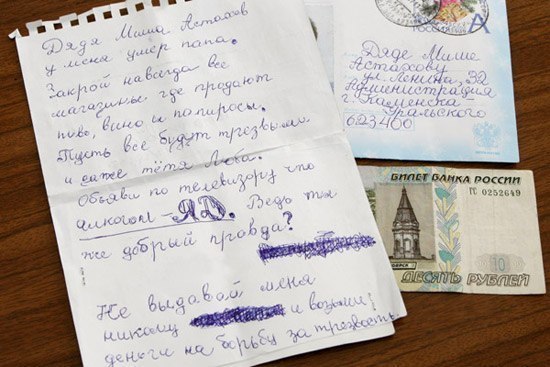 Дядя Миша Астахов
у меня умер папа.
Закрой навсегда все
магазины где продают
пиво, вино и попиросы.
Пусть все будут трезвыми
и даже тётя Люба.
Объяви по телевизору что
алкоголь – ЯД. Ведь ты
же добрый правда?
Не выдавай меня
никому
и возьми
деньги на борьбу за трезвость
А
Дяде Мише
Астахову
ул. Ленина, 32
Администрация
г. Каменска
Уральского
623400
БИЛЕТ БАНКА РОССИИ
ГС 0252649
10
ДЕСЯТЬ РУБЛЕЙ